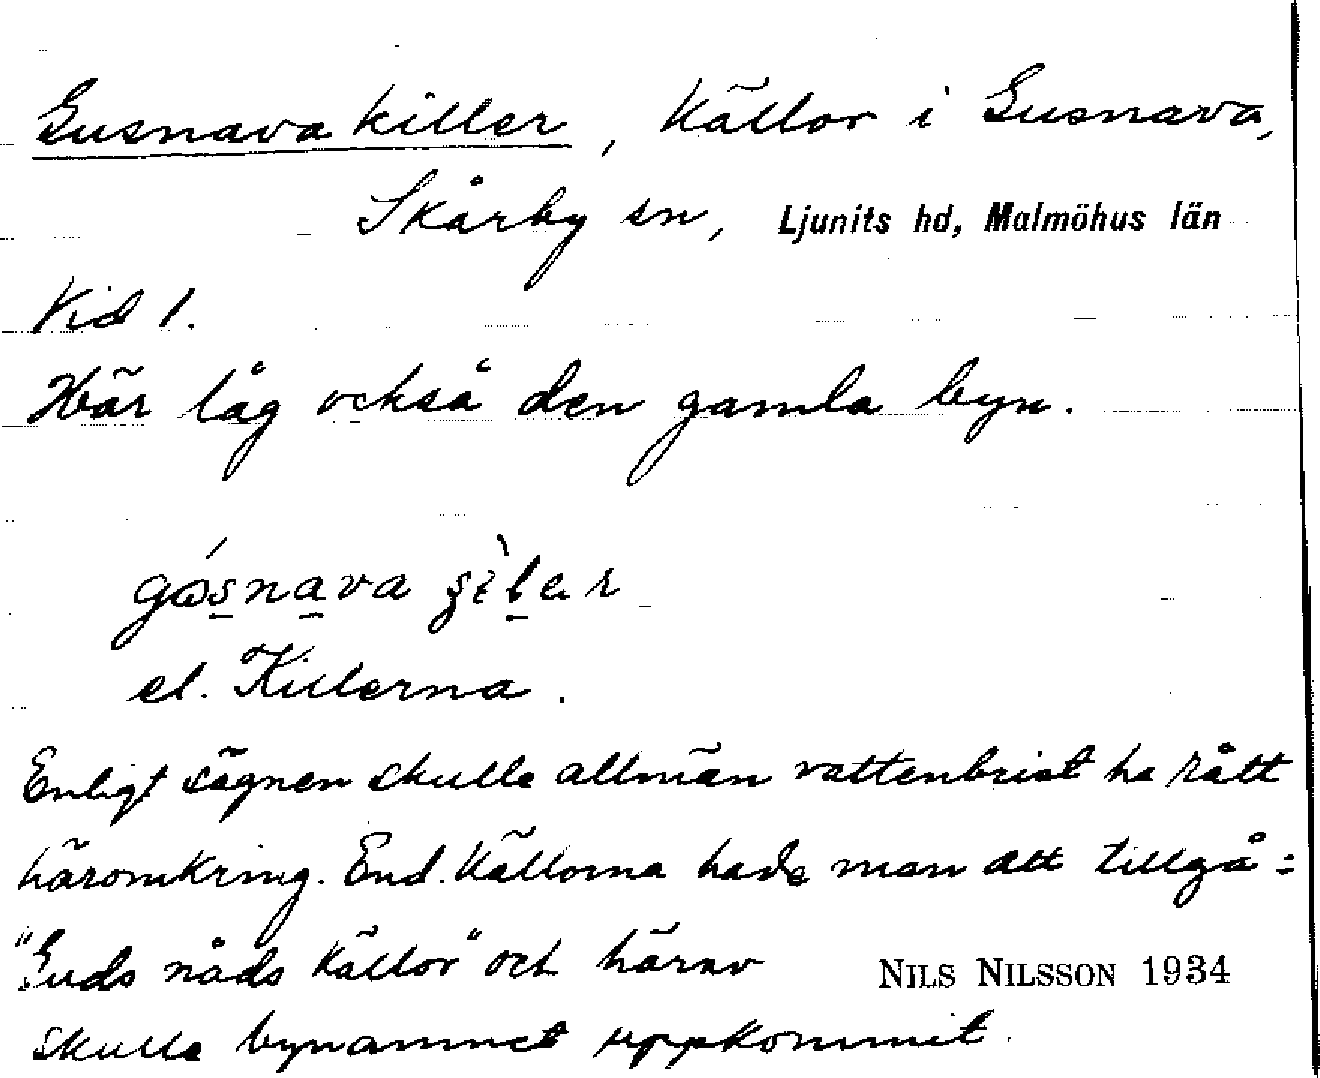 Gusnava killer, Källor i Gusnava,
Skårby sn, Ljunits hd, Malmöhus län
Vid 1.
Här låg också den gamla byn.
el. Killerna.
Enligt sägnen skulle allmän vattenbrist ha rått
häromkring. End. Källorna hade man att tillgå:
"Guds nåds källor" och härav
NILS NILSSON 1934
skulle bynamnet uppkommit.